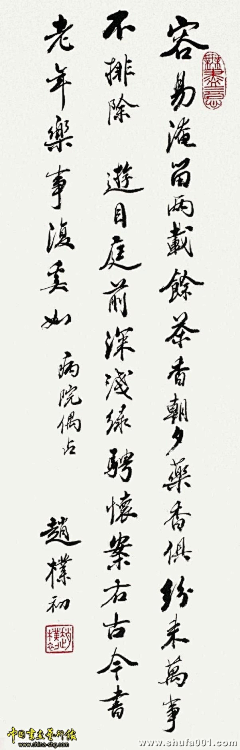 容易淹留兩載餘茶香朝夕藥香俱紛来萬事
不排除 遊目庭前深淺绿騁懷案右古今書
老年樂事復奚如 病院偶占 趙樸初
www.shufa001.com